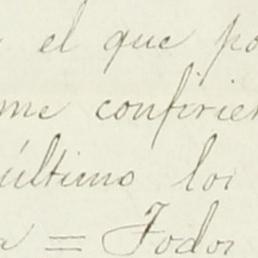 el que po
me confirie
último los
a = Todos